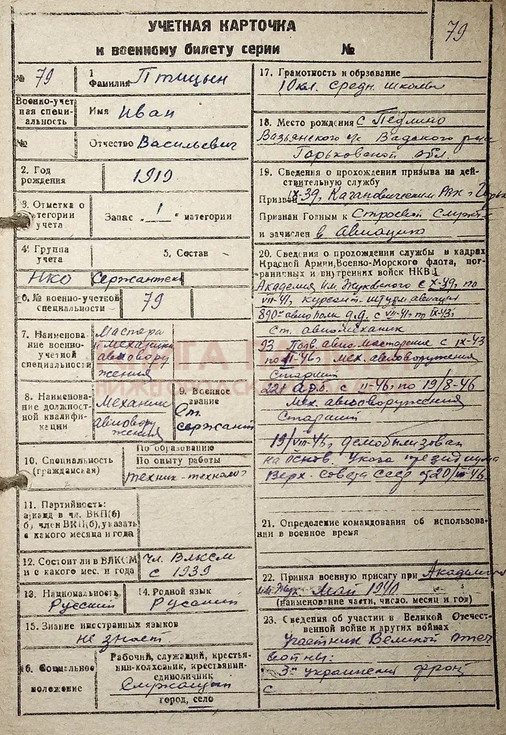 УЧЕТНАЯ КАРТОЧКА
к военному билету серии №
79
№ 79
Военно-учетная специальность
№
1
Фамилия Птицын
Имя Иван
Отчество Васильевич
2. Год рождения
1919
3. Отметка о категории учета
Запас „1“ категории
4. Группа учета
НКО
5. Состав
Сержантск
6. № военно-учетной специальности
79
7. Наименование военно-учетной специальности
Мастера и механики авиавооружения
8. Наименование должностной квалификации
Механик авиавооружения
9. Военное звание
Ст. сержант
10. Специальность (гражданская)
По образованию
По опыту работы
техник-технолог
11. Партийность:
а) канд. в чл. ВКП(б)
б) член ВКП(б), указать
с какого месяца и года
12. Состоит ли в ВЛКСМ
и с какого мес. и года
Чл. ВЛКСМ
с 1939
13. Национальность
Русский
14. Родной язык
Русский
15. Знание иностранных языков
не знает
16. Социальное положение
Рабочий, служащий, крестьянин-колхозник, крестьянин-единоличник
Служащий
город, село
17. Грамотность и обрзование
10 кл. средн. школы
18. Место рождения с
Вадского
Горьковской обл.
19. Сведения о прохождении призыва на действительную службу
Призван IX-39, Кагановичским РВК г. Горьк
Признан Годным к Строевой Службе
и зачислен в Авиацию
20. Сведения о прохождении службы в кадрах
Красной Армии, Военно-Морского флота, пограничных и внутренних войск НКВД
Академия им. Жуковского с X-39, по
VII-41, курсант
890 авиополк д.д. с VII-41 по IX-43
Ст. авиомеханик
93 Полв. авио.мастерские с IX-43
по II-46 мех. авиовооружения
Старший
221 с II-46 по 19/8-46
мех. авиовооружения
Старший
19/VIII-46, демобилизован
на основ. Указа президиума
Верх. Совета СССР от 20/III-46
21. Определение командования об использовании в военное время
22. Принял военную присягу при Академии
им. Жук. Май 1940
(наименование части, число, месяц и год)
23. Сведения об участии в Великой Отечественной войне и других войнах
Участник Великой отеч
войны:
3й украинский фронт
с